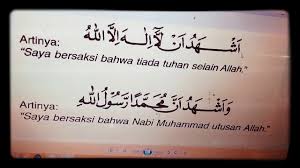 اَشْهَدُ اَنْ لَا اِلٰهَ اِلَّا اللهُ
Artinya:
"Saya bersaksi bahwa tiada tuhan selain Allah."
وَاَشْهَدُ اَنَّ مُحَمَّدًا رَسُوْلُ اللهِ
Artinya:
"Saya bersaksi bahwa Nabi Muhammad utusan Allah."